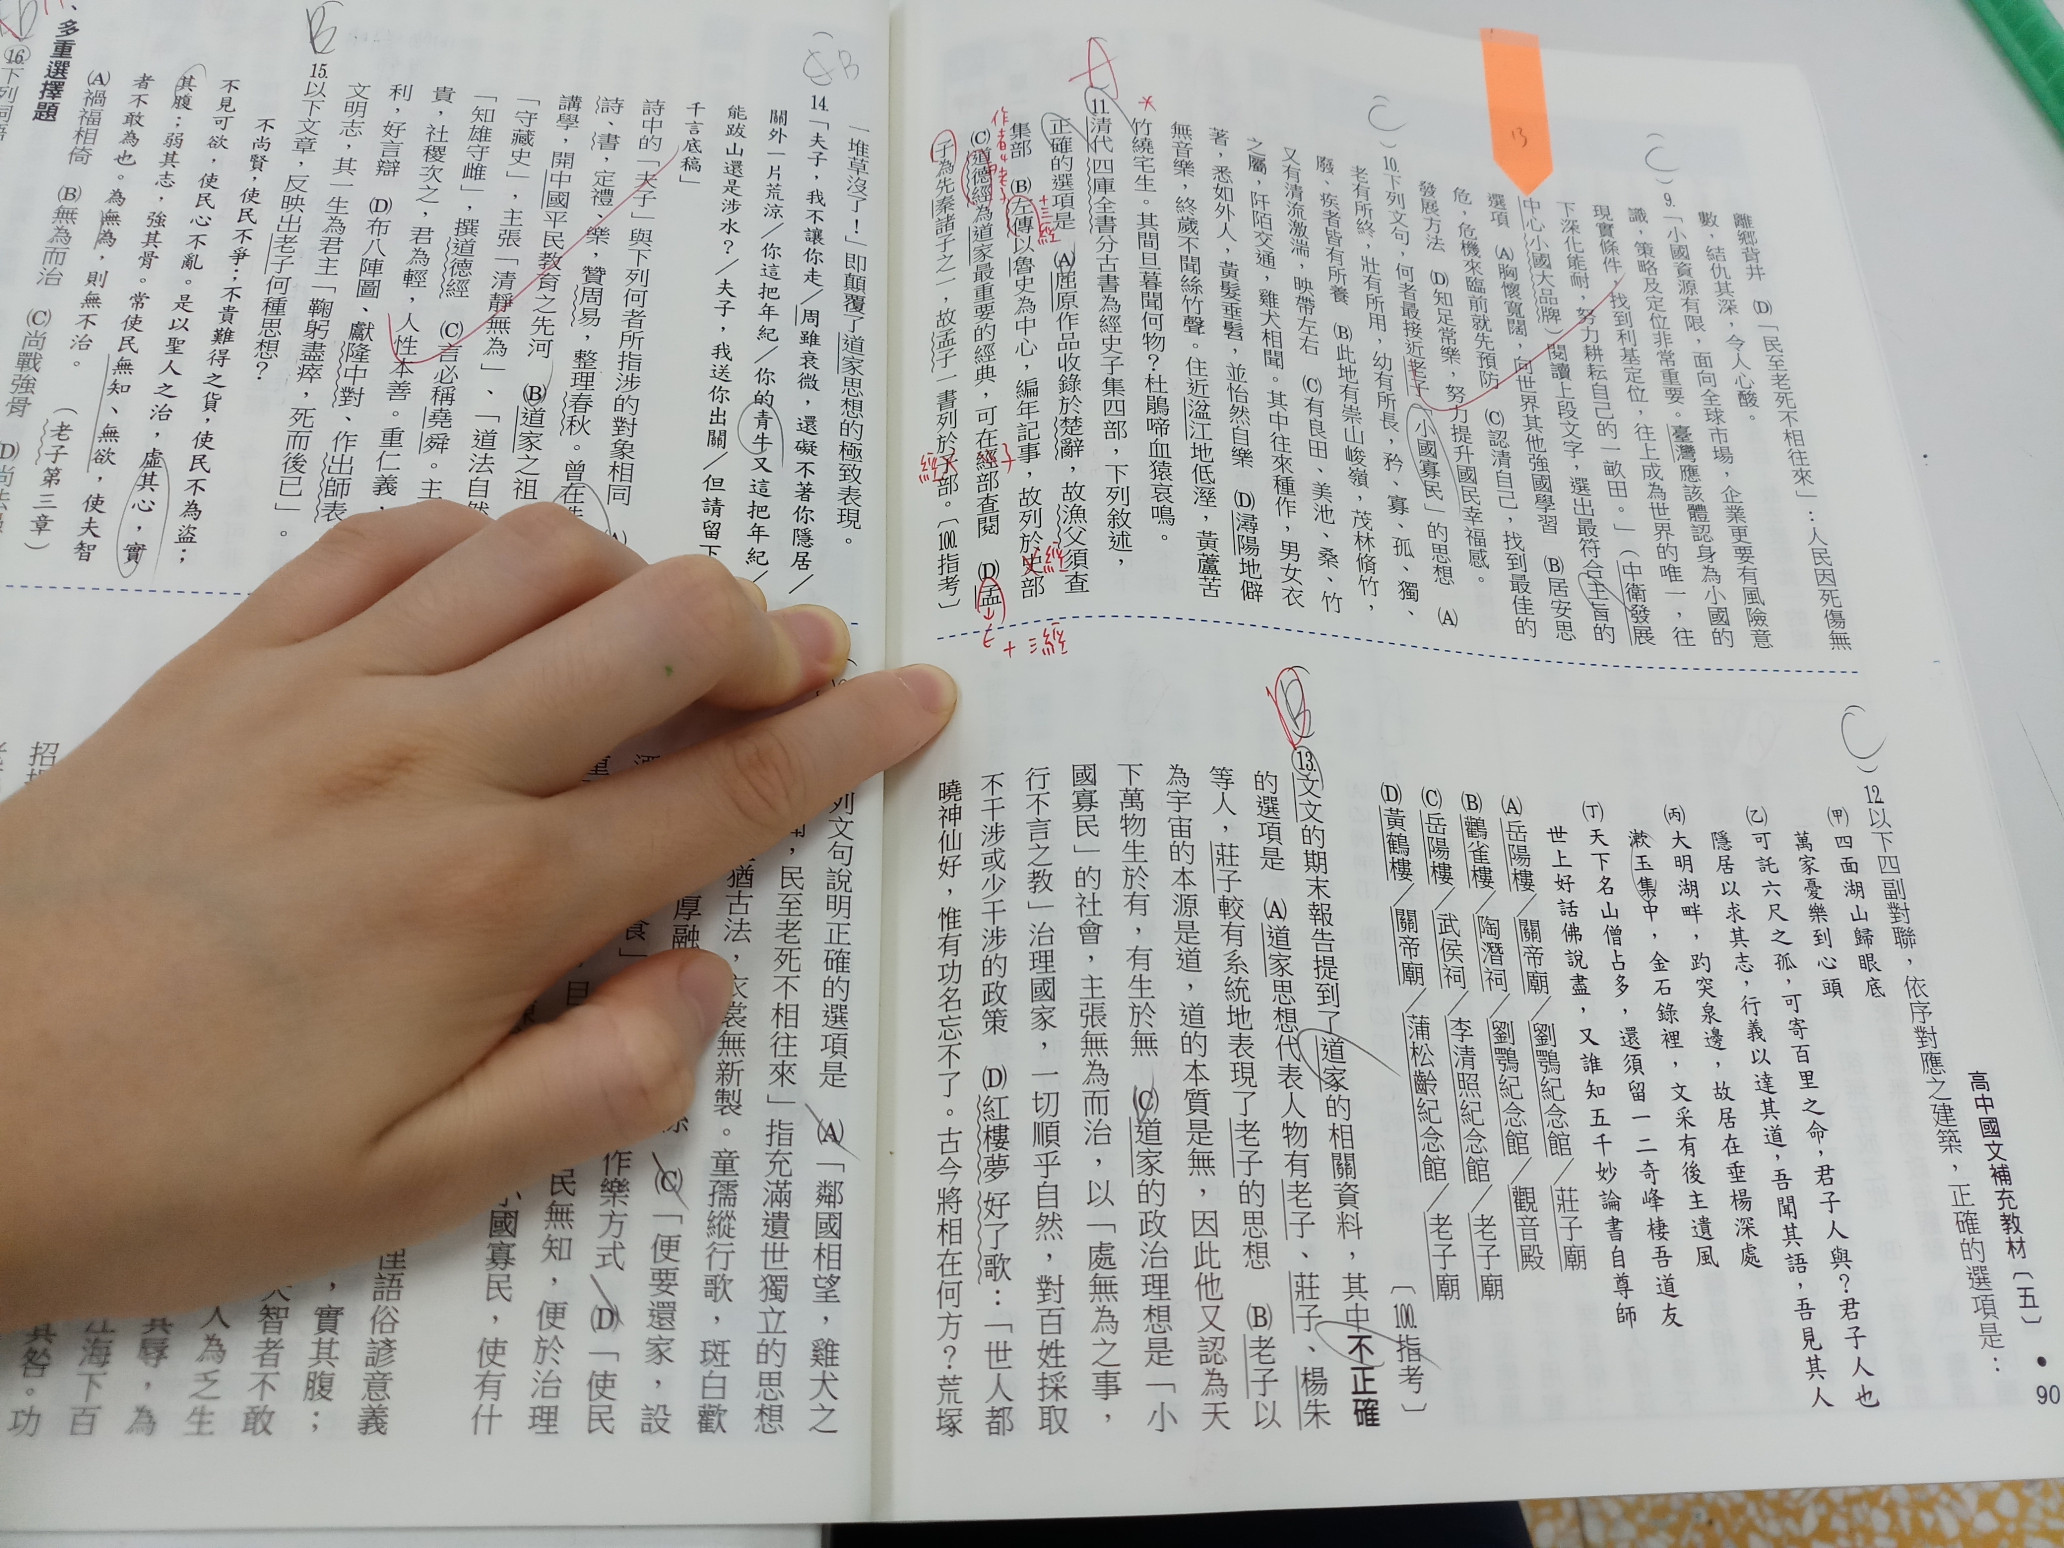 高中國文補充教材〔五〕 • 90
離鄉背井 (D)「民至老死不相往來」:人民因死傷無
數,結仇其深,令人心酸。
C
)9.「小國資源有限,面向全球市場,企業更要有風險意
識,策略及定位非常重要。臺灣應該體認身為小國的
現實條件,找到利基定位,往上成為世界的唯一,往
下深化能耐,努力耕耘自己的一畝田。」(中衛發展
中心小國大品牌)閱讀上段文字,選出最符合主旨的
選項 (A)胸懷寬闊,向世界其他強國學習 (B)居安思
危,危機來臨前就先預防 (C)認清自己,找到最佳的
發展方法 (D)知足常樂,努力提升國民幸福感。
13
C
)10.下列文句,何者最接近老子「小國寡民」的思想 (A)
老有所終,壯有所用,幼有所長,矜、寡、孤、獨、
廢、疾者皆有所養 (B)此地有崇山峻嶺,茂林脩竹,
又有清流激湍,映帶左右 (C)有良田、美池、桑、竹
之屬,阡陌交通,雞犬相聞。其中往來種作,男女衣
著,悉如外人,黃髮垂髫,並怡然自樂 (D)潯陽地僻
無音樂,終歲不聞絲竹聲。住近湓江地低溼,黃蘆苦
竹繞宅生。其間旦暮聞何物?杜鵑啼血猿哀鳴。
A
11.清代四庫全書分古書為經史子集四部,下列敘述,
正確的選項是 (A)屈原作品收錄於楚辭,故漁父須查
集部 (B)左傳以魯史為中心,編年記事,故列於史部
十三經
經
(C)道德經為道家最重要的經典,可在經部查閱 (D)孟
子
子為先秦諸子之一,故孟子一書列於子部。〔100.指考〕
經
十三經
C
)12.以下四副對聯,依序對應之建築,正確的選項是:
(甲)四面湖山歸眼底
萬家憂樂到心頭
(乙)可託六尺之孤,可寄百里之命,君子人與?君子人也
隱居以求其志,行義以達其道,吾聞其語,吾見其人
(丙)大明湖畔,趵突泉邊,故居在垂楊深處
漱玉集中,金石錄裡,文采有後主遺風
(丁)天下名山僧占多,還須留一二奇峰棲吾道友
世上好話佛說盡,又誰知五千妙論書自尊師
(A)岳陽樓/關帝廟/劉鶚紀念館/莊子廟
(B)鸛雀樓/陶潛祠/劉鶚紀念館/觀音殿
(C)岳陽樓/武侯祠/李清照紀念館/老子廟
(D)黃鶴樓/關帝廟/蒲松齡紀念館/老子廟
〔100.指考〕
B
13.文文的期末報告提到了道家的相關資料,其中不正確
的選項是 (A)道家思想代表人物有老子、莊子、楊朱
等人,莊子較有系統地表現了老子的思想 (B)老子以
為宇宙的本源是道,道的本質是無,因此他又認為天
下萬物生於有,有生於無 (C)道家的政治理想是「小
國寡民」的社會,主張無為而治,以「處無為之事,
行不言之教」治理國家,一切順乎自然,對百姓採取
不干涉或少干涉的政策 (D)紅樓夢 好了歌:「世人都
曉神仙好,惟有功名忘不了。古今將相在何方?荒塚
一堆草沒了!」即顛覆了道家思想的極致表現。
B
14.「夫子,我不讓你走/周雖衰微,還礙不著你隱居/
關外一片荒涼/你這把年紀/你的青牛又這把年紀/
能跋山還是涉水?/夫子,我送你出關/但請留下
千言底稿」
詩中的「夫子」與下列何者所指涉的對象相同
詩、書,定禮、樂,贊周易,整理春秋。曾在
講學,開中國平民教育之先河 (B)道家之祖
「守藏史」,主張「清靜無為」、「道法自然
「知雄守雌」,撰道德經 (C)言必稱堯舜。主
貴,社稷次之,君為輕,人性本善。重仁義,
利,好言辯 (D)布八陣圖、獻隆中對、作出師表
文明志,其一生為君主「鞠躬盡瘁,死而後已」。
B
15.以下文章,反映出老子何種思想?
不尚賢,使民不爭;不貴難得之貨,使民不為盜;
不見可欲,使民心不亂。是以聖人之治,虛其心,實
其腹;弱其志,強其骨。常使民無知、無欲,使夫智
者不敢為也。為無為,則無不治。 (老子第三章)
(A)禍福相倚 (B)無為而治 (C)尚戰強骨
多重選擇題
16.下列詞語
列文句說明正確的選項是 (A)「鄰國相望,雞犬之
,民至老死不相往來」指充滿遺世獨立的思想
猶古法,衣裳無新製。童孺縱行歌,斑白歡
(C)「便要還家,設
作樂方式 (D)「使民
民無知,便於治理
國寡民,使有什
俚語俗諺意義
,實其腹;
智者不敢
人為乏生
其辱,為
江海下百
其咎。功